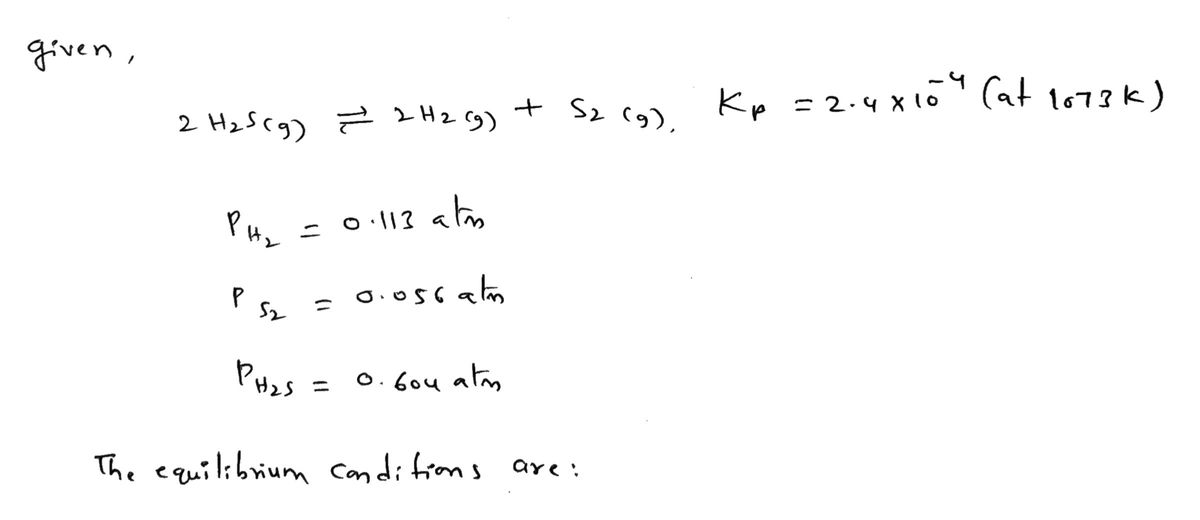 given,
2 H₂S(g) ⇌ 2 H₂ (g) + S₂ (g), Kp = 2.4 × 10⁻⁴ (at 1073 K)
P H₂ = 0.113 atm
P S₂ = 0.056 atm
P H₂S = 0.604 atm
The equilibrium conditions are: